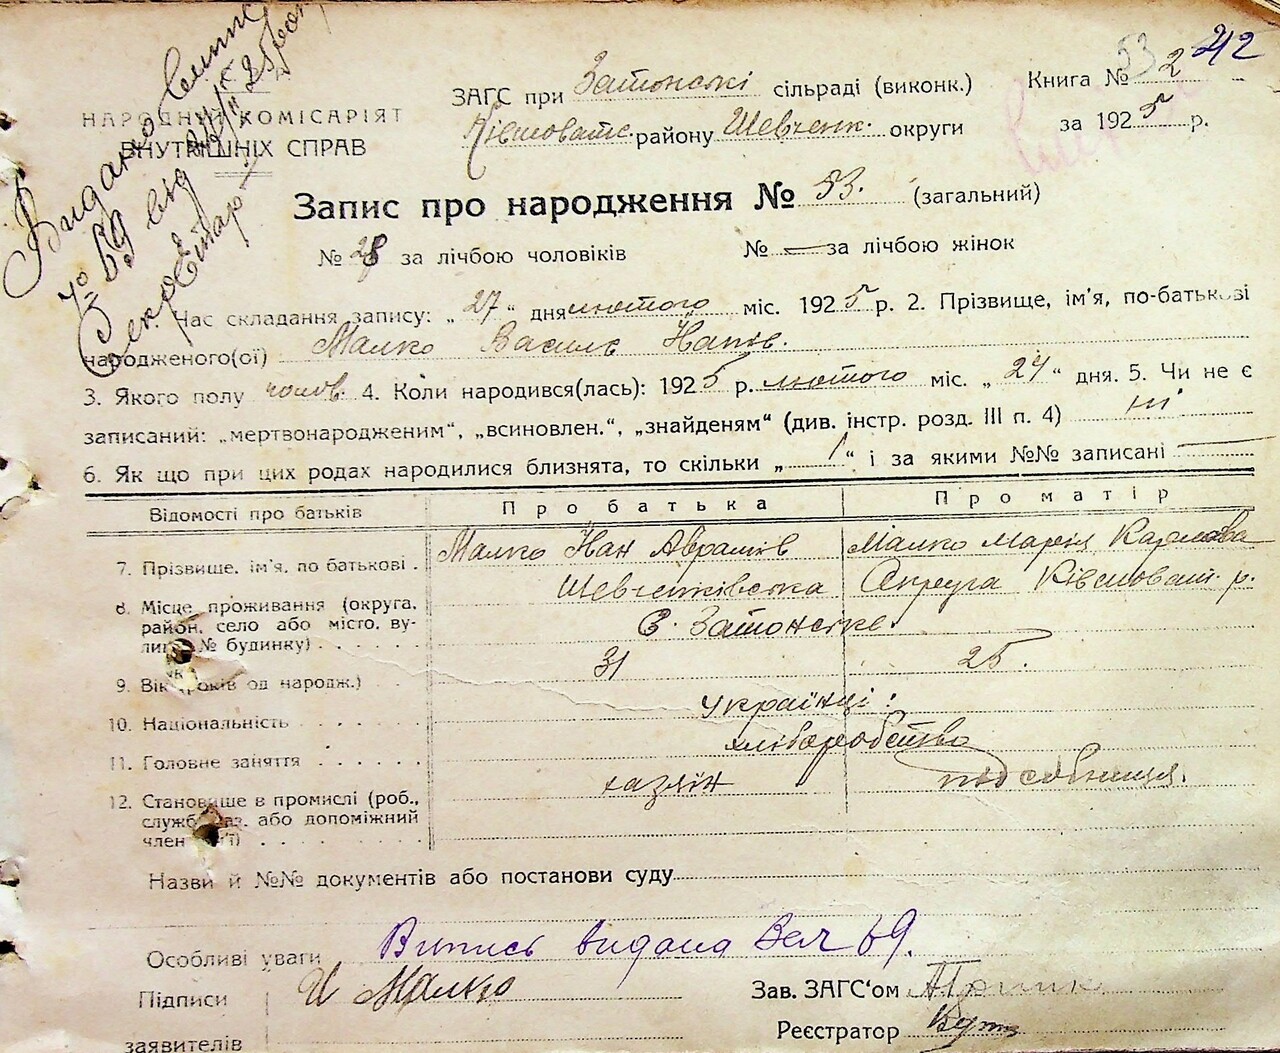 53 2 242
НАРОДНИЙ КОМІСАРІЯТ
ВНУТРІШНІХ СПРАВ
Видано
№ 69 від
Секретар
ЗАГС при Затонські сільраді (виконк.) Книга № 2
району Шевченк. округи за 1925 р.
Запис про народження № 53. (загальний)
№ 28 за лічбою чоловіків № — за лічбою жінок
Час складання запису: „27“ дня лютого міс. 1925 р. 2. Прізвище, ім'я, по-батькові
народженого(ої) Малко Василь
3. Якого полу чолов. 4. Коли народився(лась): 1925 р. лютого міс. „24“ дня. 5. Чи не є
записаний: „мертвонародженим“, „всиновлен.“, „знайденям“ (див. інстр. розд. III п. 4) ні
6. Як що при цих родах народилися близнята, то скільки „1“ і за якими №№ записані —
Відомості про батьків Про батька Про матір
7. Прізвище, ім'я, по батькові . Малко Іван Аврамів Малко Марія
8. Місце проживання (округа, район, село або місто, вулиця № будинку) Шевченківська Округа р.
С. Затонське
9. Вік (років од народж.) 31 25.
10. Національність українці
11. Головне заняття хліборобство
12. Становище в промислі (роб., службов. або допоміжний член хазяїн
Назви й №№ документів або постанови суду
Особливі уваги Випись видана 69.
Підписи І Малко Зав. ЗАГС'ом
заявителів Реєстратор